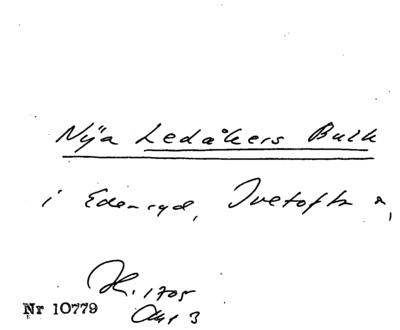 Nÿa Ledåkers Bulk
i Edenryd, Ivetofta s,
H. 1705
Nr 10779